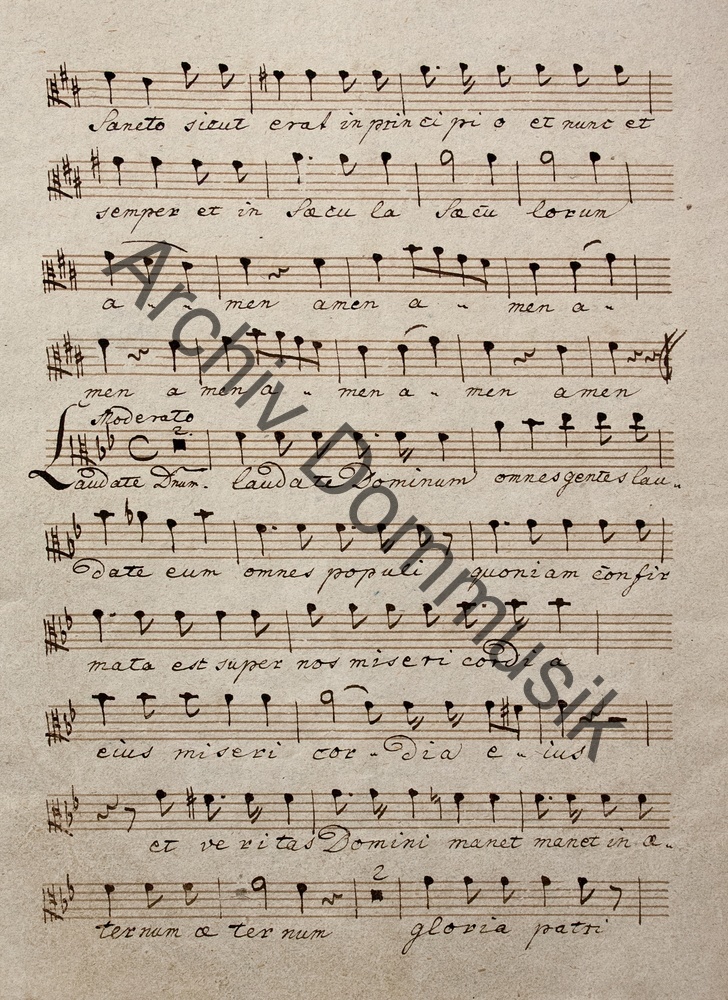 Sancto sicut erat in principio et nunc et
semper et in Sæcula Sæculorum
a - - men amen a - men a -
men a men a - men a - men amen
Moderato
2.
Laudate Dnum. laudate Dominum omnes gentes lau -
date eum omnes populi quoniam confir
mata est super nos misericordia
eius miseri cor - dia e - ius
et veritas Domini manet manet in æ -
2
ternum æternum gloria patri
Archiv Dommusik